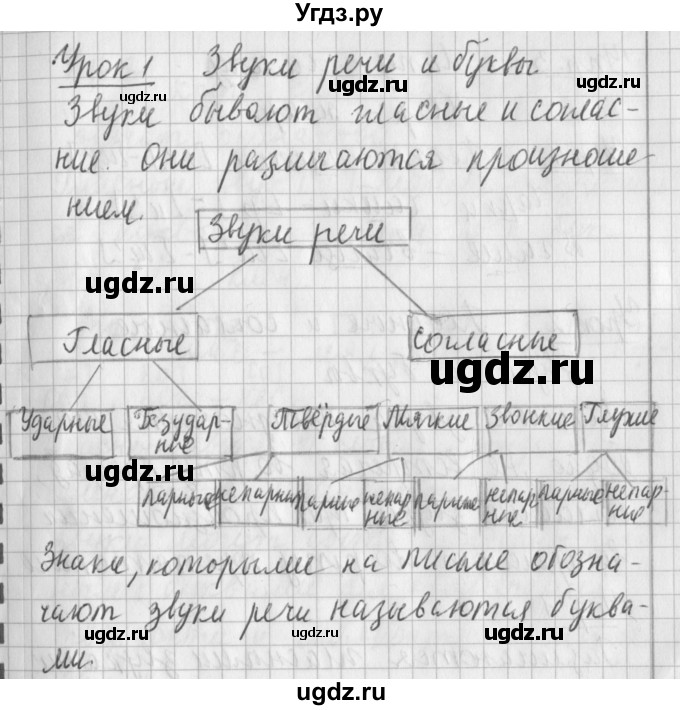 Угдз.ру
Урок 1 Звуки речи и буквы
ugdz.ru ugdz.ru
Звуки бывают гласные и соглас-
ugdz.ru ugdz.ru
ные. Они различаются произноше-
нием.
Звуки речи
ugdz.ru
ugdz.ru
Гласные согласные
ugdz.ru
Ударные Безудар- Твёрдые Мягкие Звонкие Глухие
ные
ugdz.ru
парные непарные парные непар- парные непар- парные непар-
ные ные ные
Знаки, которыми на письме обозна-
ugdz.ru
чают звуки речи называются буква-
ugdz.ru ugdz.ru ugdz.ru
ми.
ugdz.ru
ugdz.ru